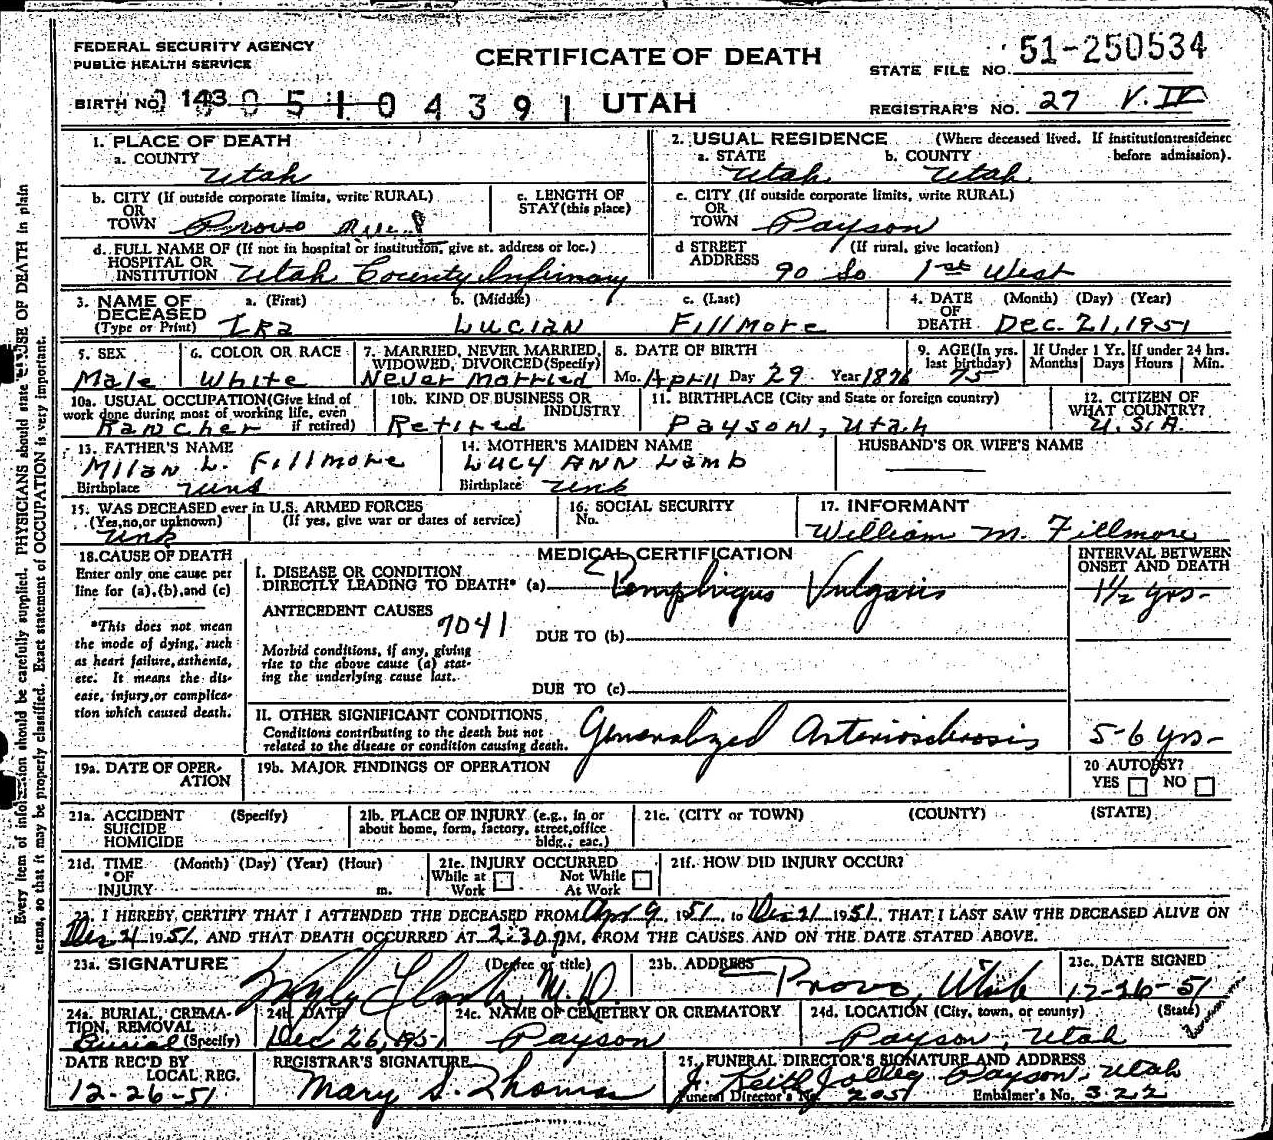 FEDERAL SECURITY AGENCY
PUBLIC HEALTH SERVICE
CERTIFICATE OF DEATH
STATE FILE NO. 51-250534
BIRTH NO. 143 05104391 UTAH
REGISTRAR'S NO. 27 V. IV
1. PLACE OF DEATH
a. COUNTY
Utah
2. USUAL RESIDENCE (Where deceased lived. If institution:residence before admission).
a. STATE b. COUNTY
Utah Utah
b. CITY (If outside corporate limits, write RURAL)
OR
TOWN Provo Rural
c. LENGTH OF
STAY (this place)
c. CITY (If outside corporate limits, write RURAL)
OR
TOWN Payson
d. FULL NAME OF (If not in hospital or institution, give st. address or loc.)
HOSPITAL OR
INSTITUTION Utah County Infirmary
d STREET (If rural, give location)
ADDRESS 90 So 1st West
3. NAME OF DECEASED (Type or Print)
a. (First) b. (Middle) c. (Last)
Ira Lucian Fillmore
4. DATE OF DEATH (Month) (Day) (Year)
Dec. 21, 1951
5. SEX
Male
6. COLOR OR RACE
White
7. MARRIED, NEVER MARRIED,
WIDOWED, DIVORCED (Specify)
Never Married
8. DATE OF BIRTH
Mo. April Day 29 Year 1876
9. AGE (In yrs. last birthday)
75
If Under 1 Yr. Months Days
If under 24 hrs. Hours Min.
10a. USUAL OCCUPATION (Give kind of
work done during most of working life, even
if retired)
Rancher
10b. KIND OF BUSINESS OR
INDUSTRY
Retired
11. BIRTHPLACE (City and State or foreign country)
Payson, Utah
12. CITIZEN OF
WHAT COUNTRY?
U.S.A.
13. FATHER'S NAME
Milan L. Fillmore
Birthplace Unk
14. MOTHER'S MAIDEN NAME
Lucy Ann Lamb
Birthplace Unk
HUSBAND'S OR WIFE'S NAME
15. WAS DECEASED ever in U.S. ARMED FORCES
(Yes, no, or unknown) (If yes, give war or dates of service)
Unk
16. SOCIAL SECURITY
No.
17. INFORMANT
William M. Fillmore
18. CAUSE OF DEATH
Enter only one cause per
line for (a), (b), and (c)
*This does not mean
the mode of dying, such
as heart failure, asthenia,
etc. It means the dis-
ease, injury, or complica-
tion which caused death.
MEDICAL CERTIFICATION
I. DISEASE OR CONDITION
DIRECTLY LEADING TO DEATH* (a) Pemphigus Vulgaris
INTERVAL BETWEEN
ONSET AND DEATH
1½ yrs-
ANTECEDENT CAUSES
7041
DUE TO (b)
Morbid conditions, if any, giving
rise to the above cause (a) stat-
ing the underlying cause last.
DUE TO (c)
II. OTHER SIGNIFICANT CONDITIONS
Conditions contributing to the death but not
related to the disease or condition causing death.
Generalized Arteriosclerosis
5-6 yrs-
19a. DATE OF OPER-
ATION
19b. MAJOR FINDINGS OF OPERATION
20 AUTOPSY?
YES NO
21a. ACCIDENT (Specify)
SUICIDE
HOMICIDE
21b. PLACE OF INJURY (e.g., in or
about home, form, factory, street, office
bldg., eac.)
21c. (CITY OR TOWN) (COUNTY) (STATE)
21d. TIME (Month) (Day) (Year) (Hour)
OF
INJURY m.
21e. INJURY OCCURRED
While at Work Not While At Work
21f. HOW DID INJURY OCCUR?
22. I HEREBY CERTIFY THAT I ATTENDED THE DECEASED FROM Apr 9, 1951 to Dec 21 1951, THAT I LAST SAW THE DECEASED ALIVE ON
Dec 21 1951, AND THAT DEATH OCCURRED AT 2:30 PM, FROM THE CAUSES AND ON THE DATE STATED ABOVE.
23a. SIGNATURE (Degree or title)
Clark, M.D.
23b. ADDRESS
Provo, Utah
23c. DATE SIGNED
12-26-51
24a. BURIAL, CREMA-
TION, REMOVAL
(Specify)
Burial
24b. DATE
Dec 26, 1951
24c. NAME OF CEMETERY OR CREMATORY
Payson
24d. LOCATION (City, town, or county) (State)
Payson, Utah
DATE REC'D BY
LOCAL REG.
12-26-51
REGISTRAR'S SIGNATURE
Mary S. Thomas
25. FUNERAL DIRECTOR'S SIGNATURE AND ADDRESS
J. Keith Jolley Payson, Utah
Funeral Director's No. 2051 Embalmer's No. 322
Every item of information should be carefully supplied. PHYSICIANS should state CAUSE OF DEATH in plain
terms, so that it may be properly classified. Exact statement of OCCUPATION is very important.